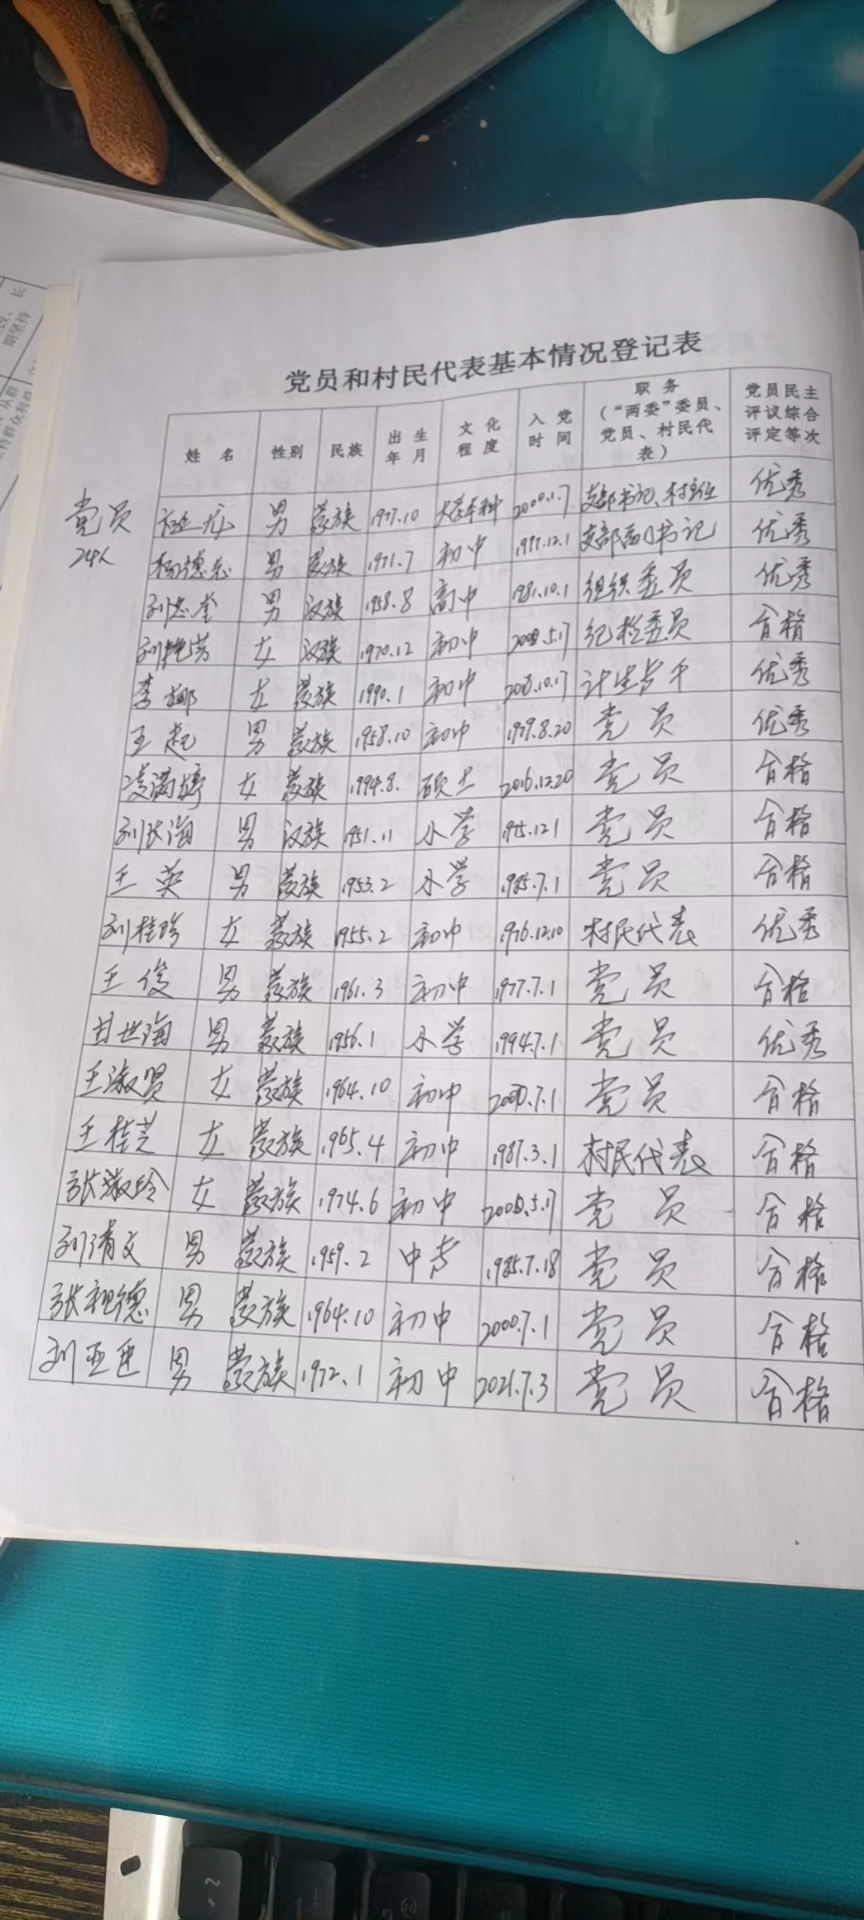 党员和村民代表基本情况登记表
姓名 性别 民族 出生年月 文化程度 入党时间 职务（“两委”委员、党员、村民代表） 党员民主评议综合评定等次
党员
24人
龙 男 蒙族 1977.10 大学本科 2000.1.7 支部书记、村主任 优秀
德 男 蒙族 1971.7 初中 1997.12.1 支部副书记 优秀
刘忠奎 男 汉族 1958.8 高中 1981.10.1 组织委员 优秀
刘艳芳 女 汉族 1970.12 初中 5.17 纪检委员 合格
李娜 女 蒙族 1990.1 初中 10.17 计生专干 优秀
王起 男 蒙族 1958.10 初中 1979.8.20 党员 优秀
凌满婷 女 蒙族 1994.8. 硕士 2016.12.20 党员 合格
刘长海 男 汉族 1951.11 小学 1975.12.1 党员 合格
王英 男 蒙族 1953.2 小学 1985.7.1 党员 合格
刘桂珍 女 蒙族 1955.2 初中 1976.12.10 村民代表 优秀
王俊 男 蒙族 1961.3 初中 1977.7.1 党员 合格
世海 男 蒙族 1956.1 小学 1994.7.1 党员 优秀
王淑贤 女 蒙族 1964.10 初中 2000.7.1 党员 合格
王桂芝 女 蒙族 1965.4 初中 1987.3.1 村民代表 合格
张淑玲 女 蒙族 1974.6 初中 2000.5.17 党员 合格
刘清文 男 蒙族 1959.2 中专 1985.7.18 党员 合格
张祖德 男 蒙族 1964.10 初中 2000.7.1 党员 合格
刘亚 男 蒙族 1972.1 初中 2021.7.3 党员 合格